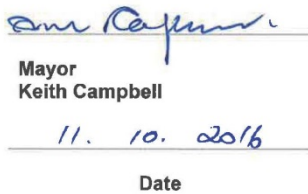 Mayor
Keith Campbell
11. 10. 2016
Date